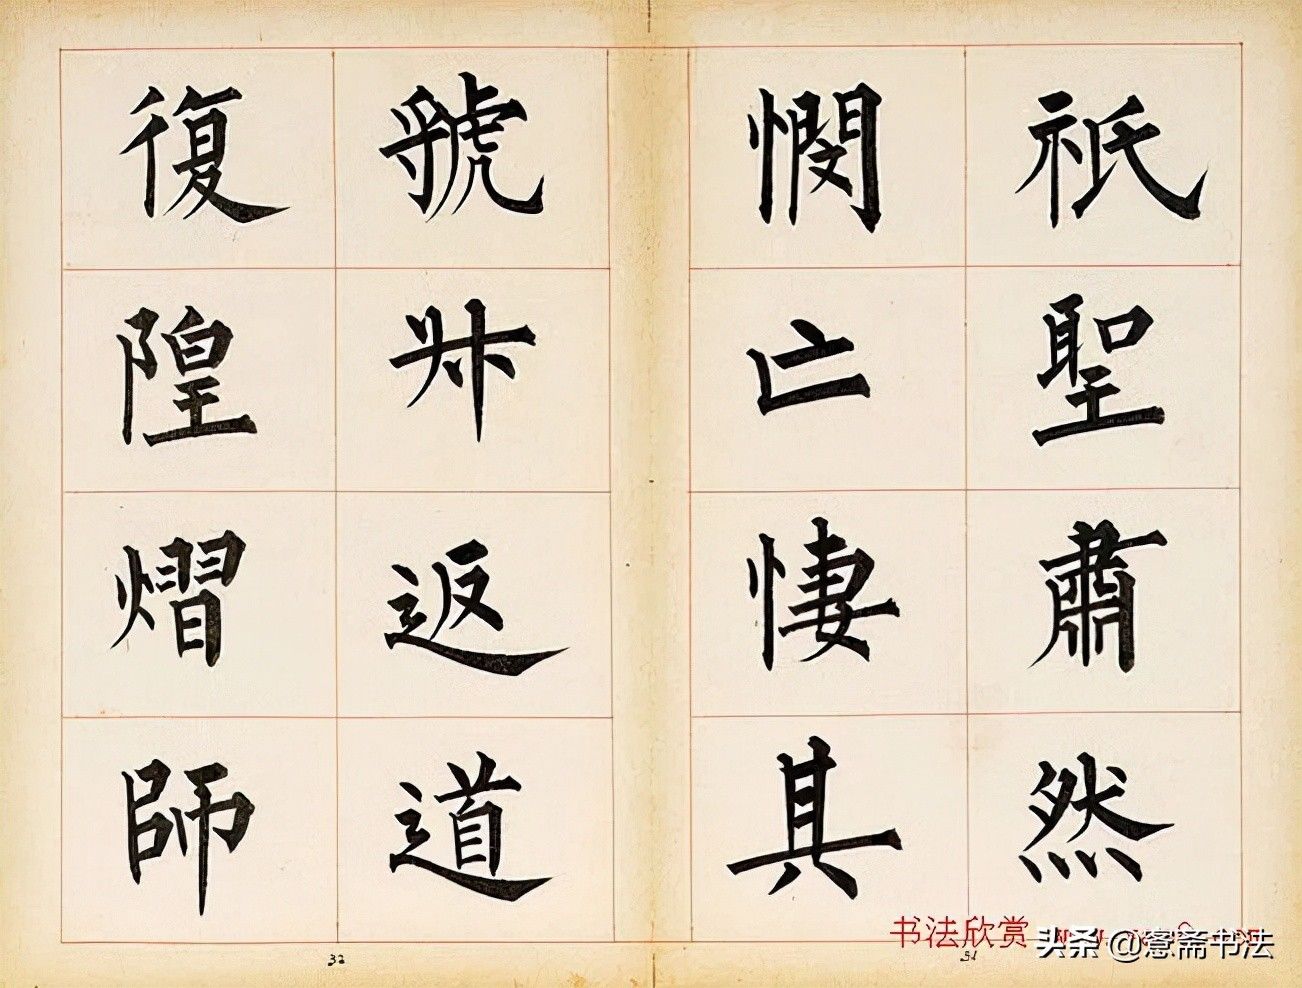 祇聖肅然
憫亡悽其
虢返道
復隍熠師
31
32
书法欣赏
头条 @斋书法